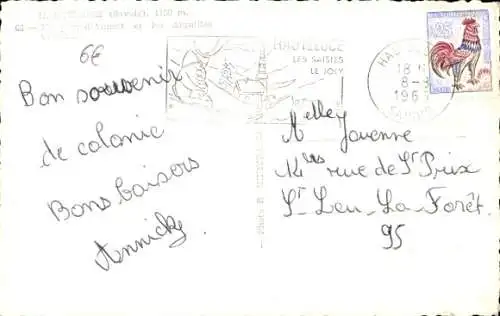 (Savoie), 1150 m.
et les Aiguilles
6€
Bon souvenir
de colonie
Bons baisers
Annick
HAUTELUCE
LES SAISIES
LE JOLY
18 H
196
0,25
Melley Javenne
rue de St Prix
St Leu-La-Forêt
95